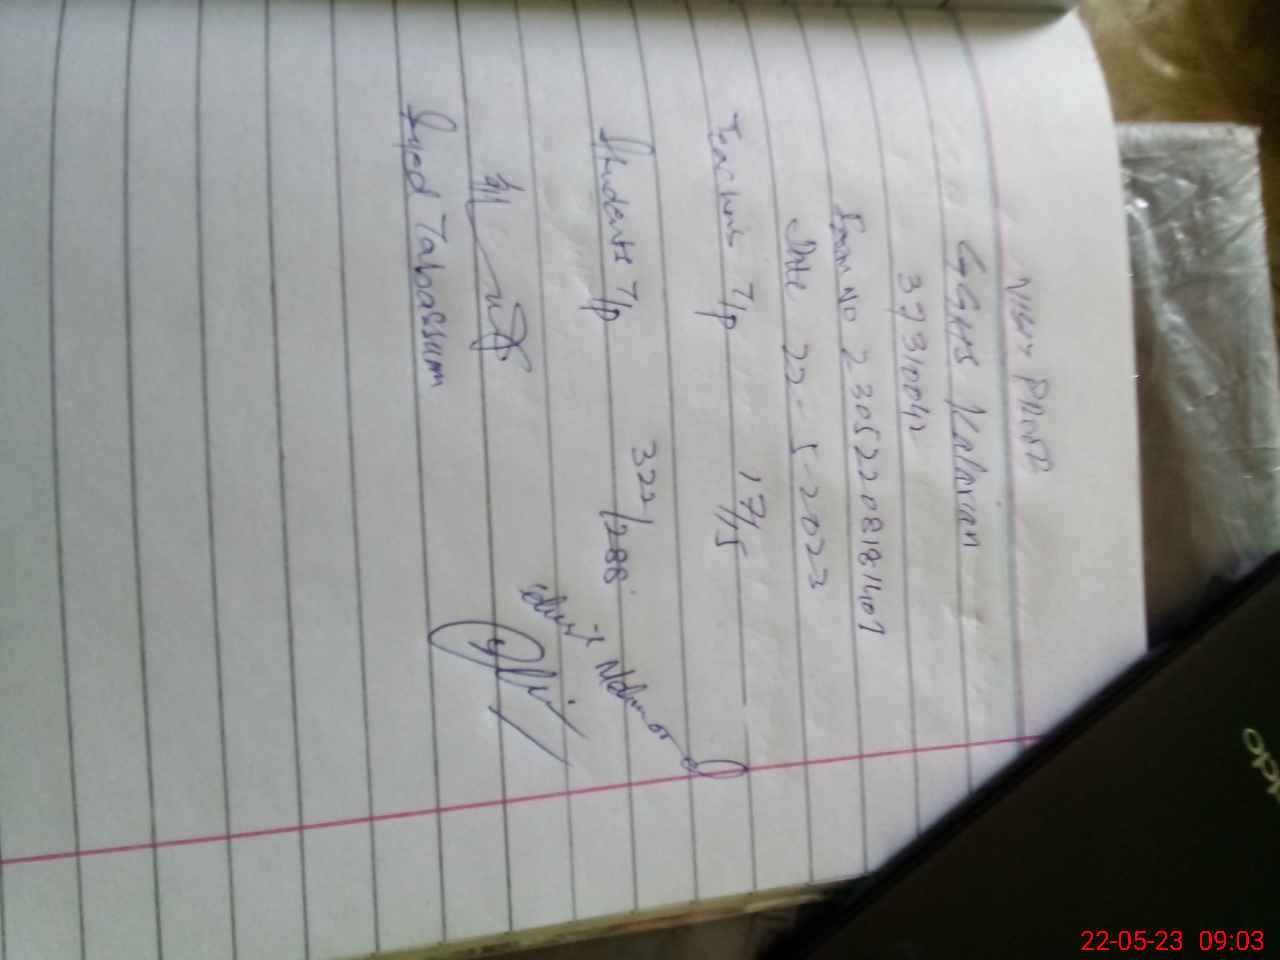 Visit Proof
GGHS Kaliaran
37310042
Form No 23052208181401
Date 22-5-2023
Teachers T/P 17/15
Students T/P 322/288
Syed Tabassum
22-05-23 09:03